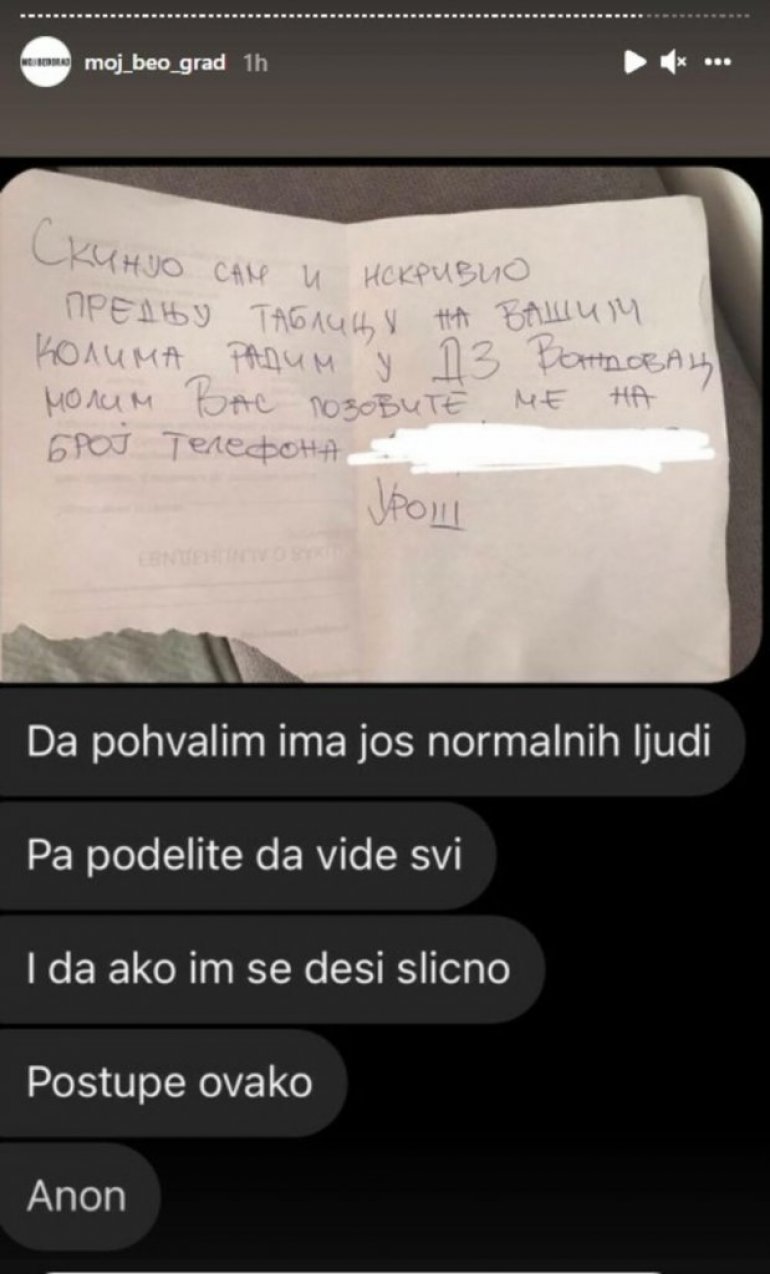 moj_beo_grad 1h
Скинуо сам и искривио
предњу таблицу на вашим
колима радим у ДЗ Вождовац
молим Вас позовите ме на
број телефона
Урош
Da pohvalim ima jos normalnih ljudi
Pa podelite da vide svi
I da ako im se desi slicno
Postupe ovako
Anon